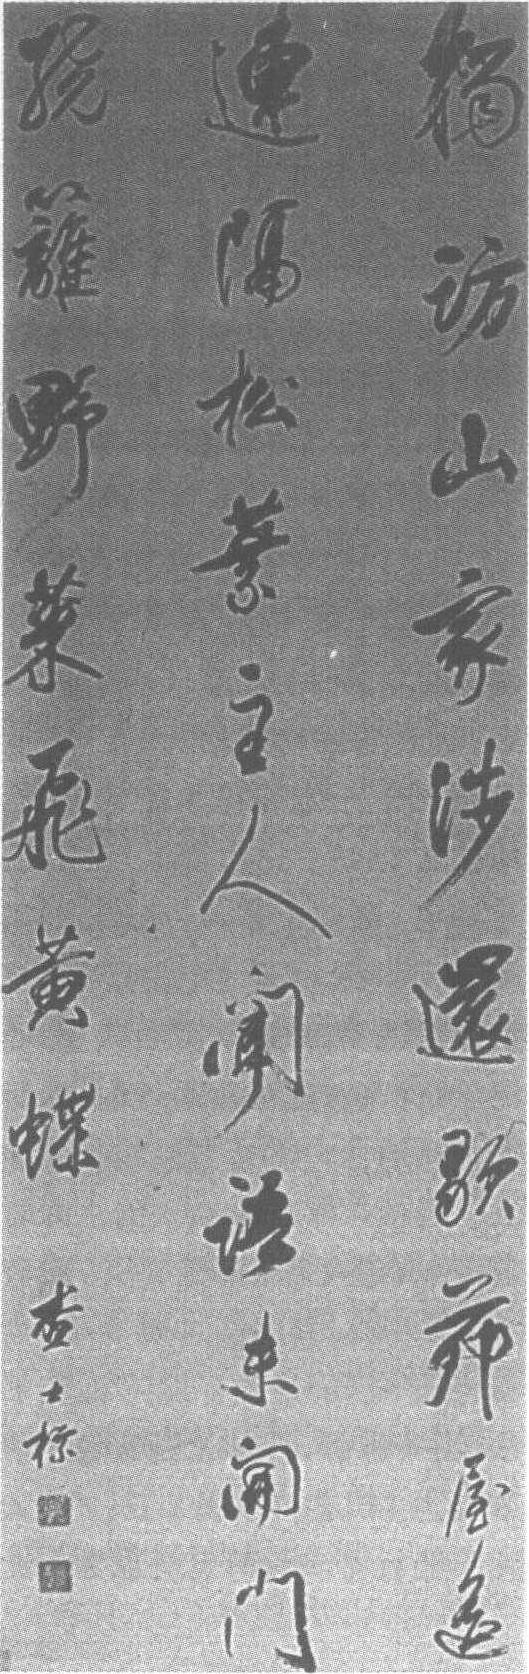 獨訪山家涉還歇茅屋遙
連隔松葉主人聞語未開門
繞籬野菜飛黃蝶
查士標